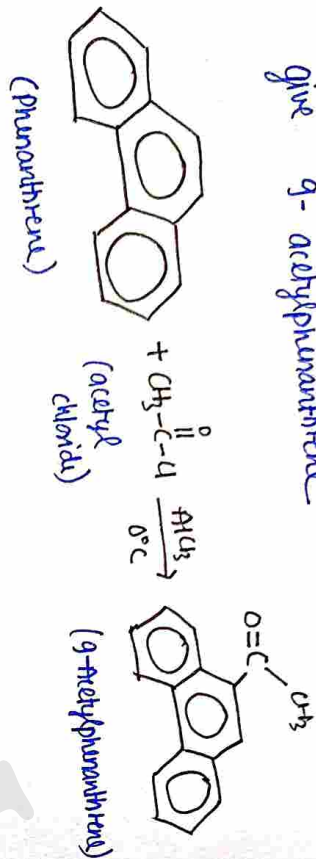 give 9-acetylphenanthrene
(Phenanthrene)
+ CH3-C-Cl
O
(acetyl
chloride)
AlCl3
0°C
O=C
CH3
(9-Acetylphenanthrene)